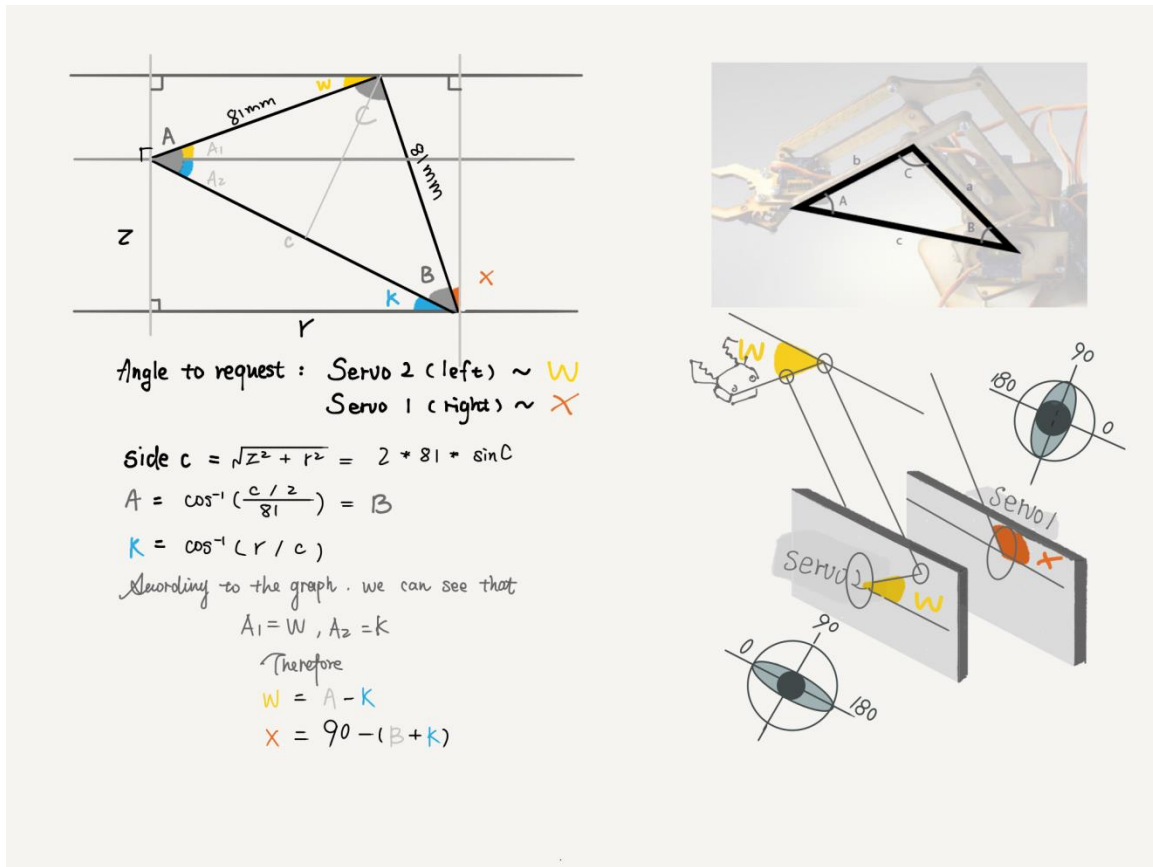 W
81mm
C
A
A1
A2
81mm
z
c
B
X
K
r
Angle to request : Servo 2 (left) ~ W
Servo 1 (right) ~ X
side c = √z² + r² = 2 * 81 * sinC
A = cos⁻¹ (c / 2 / 81) = B
K = cos⁻¹ (r / c)
According to the graph. we can see that
A1 = W , A2 = K
Therefore
W = A - K
X = 90 - (B + K)
b
C
a
A
B
c
W
90
180
0
Servo1
X
Servo2
W
90
0
180